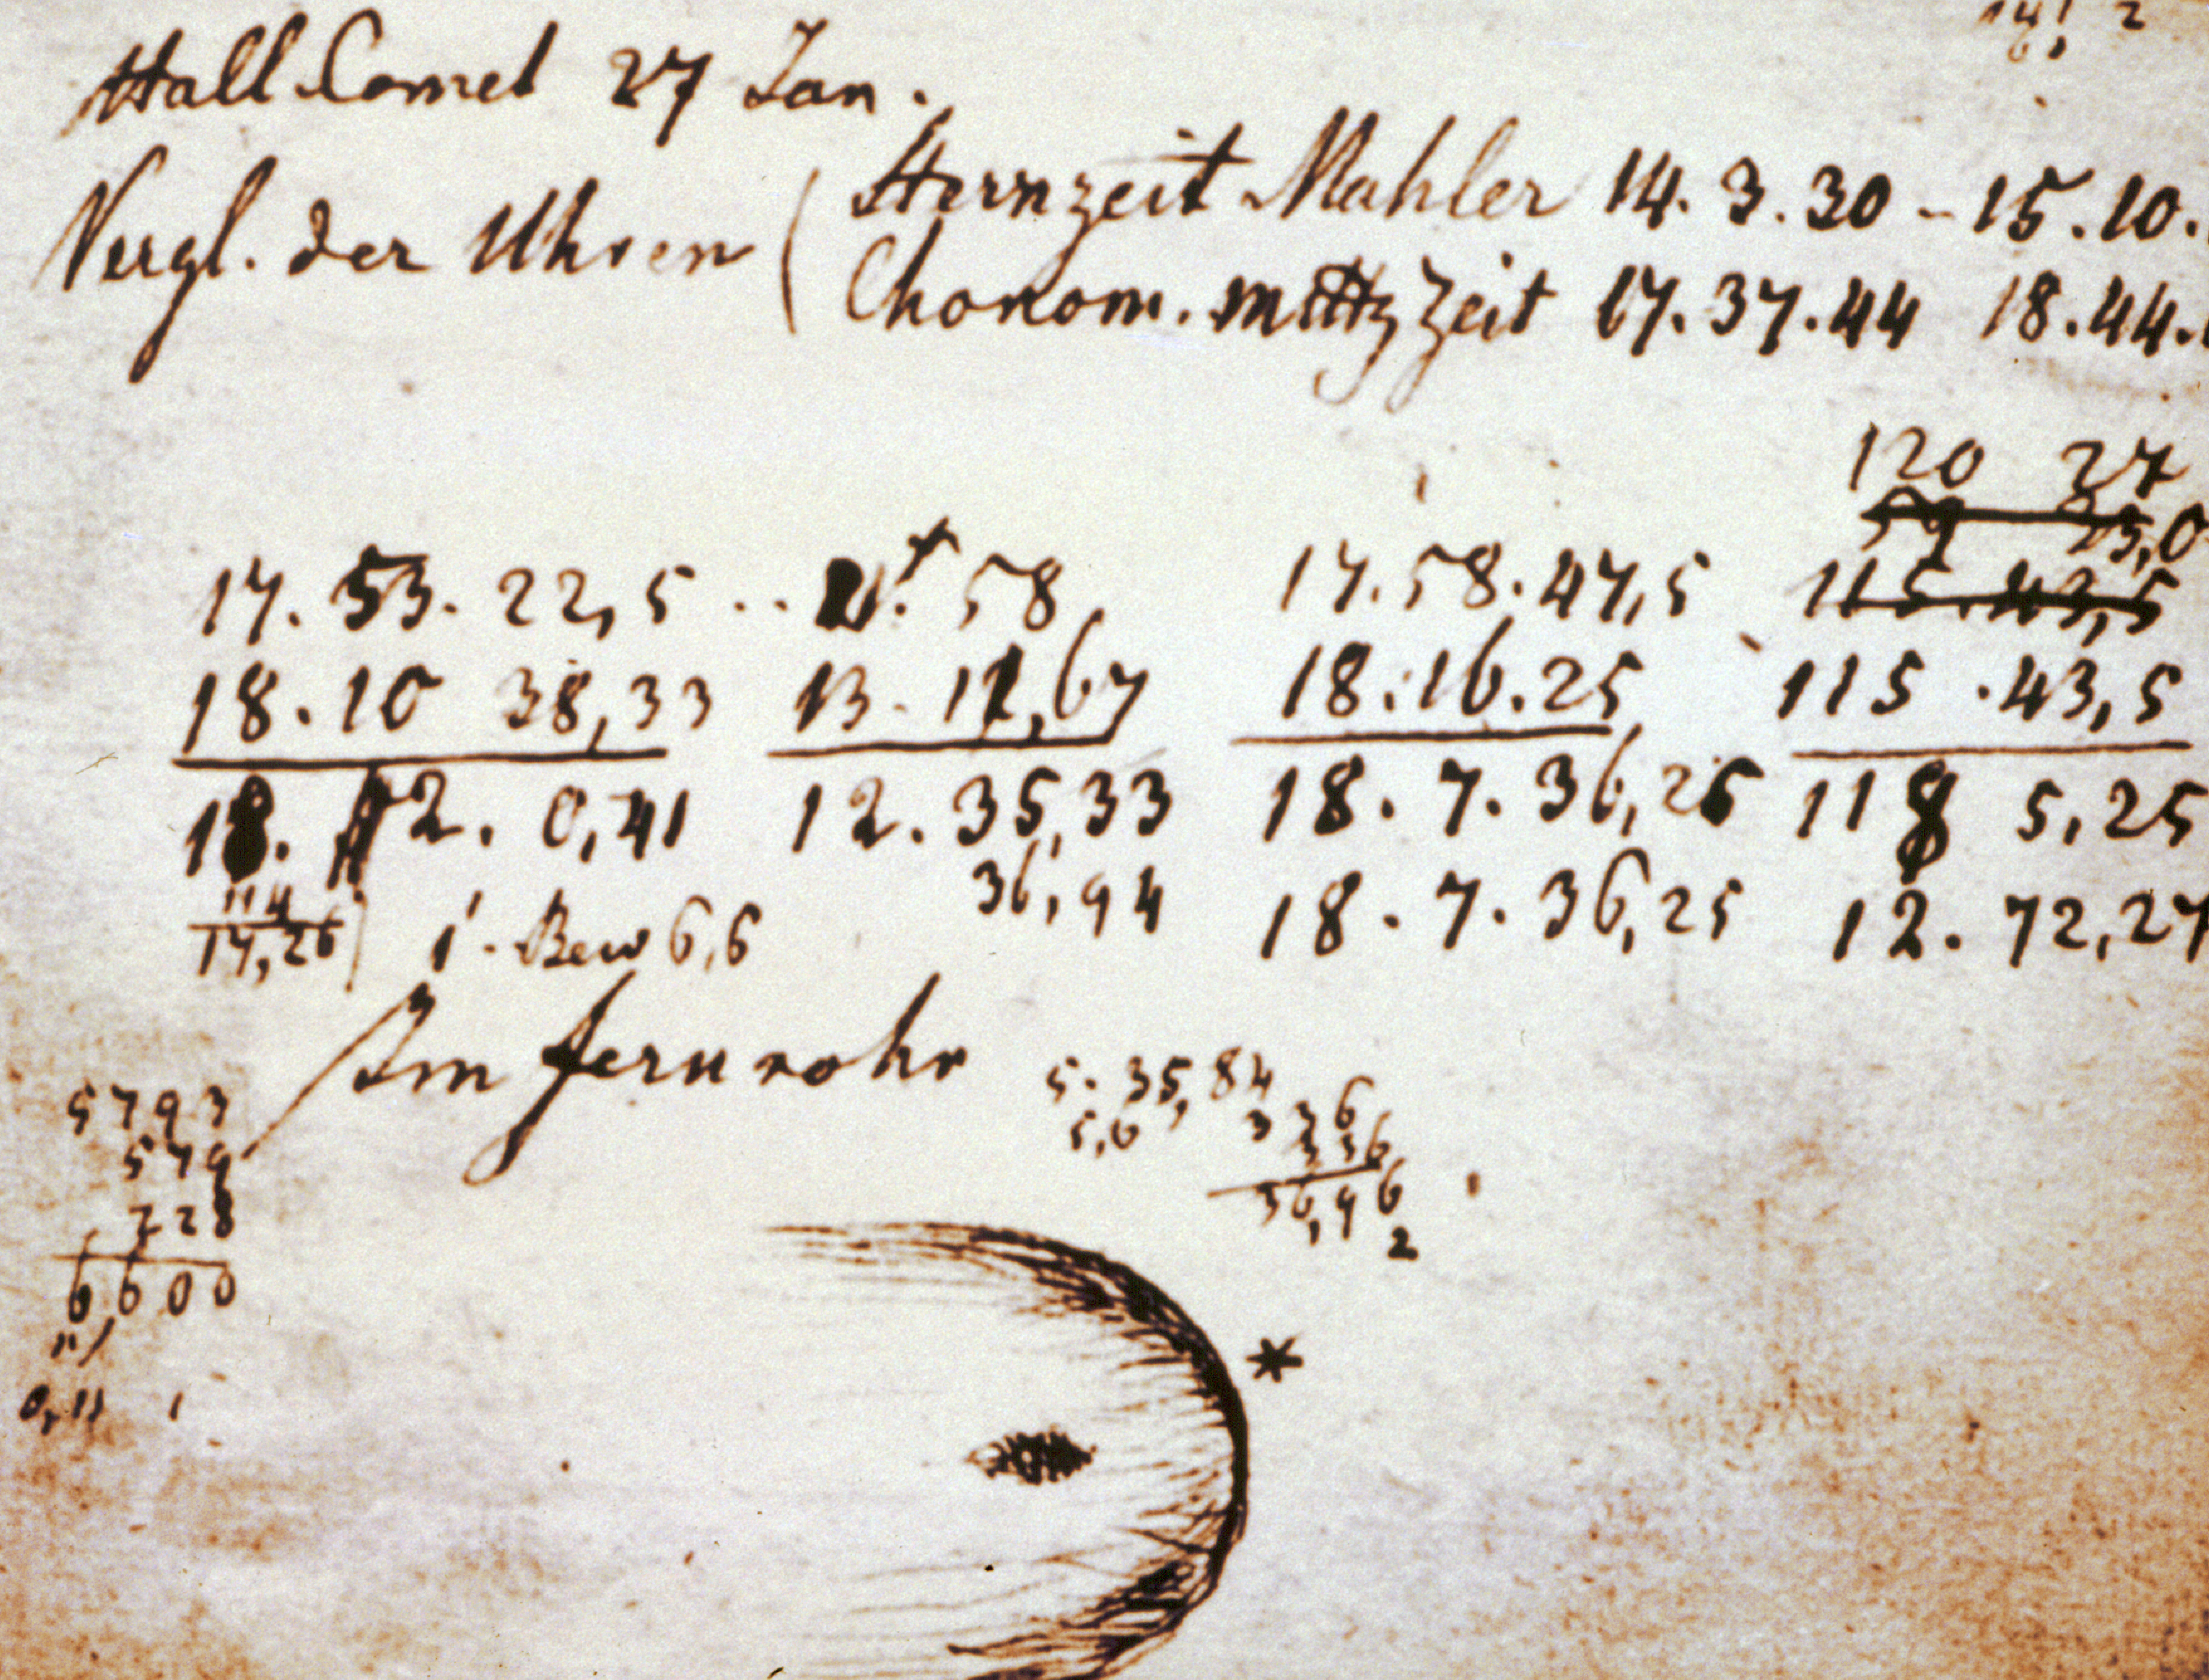 Hall Comet 27 Jan.
Vergl. der Uhren ( Sternzeit Mahler 14. 3. 30 - 15. 10.
Chonom. mittz Zeit 17. 37. 44 18. 44.
120 27
17. 53. 22,5 .. 58, 17. 58. 47,5 115. 43,5
18. 10 38,33 13. 11,67 18. 16. 25 115 . 43,5
18. 12. 0,41 12. 35,33 18. 7. 36,25 118 5,25
36,94 18. 7. 36,25 12. 72,27
114
17,26 1'. Bew 6,6
Im fernrohr
5. 35,84
5,6 336
336
36,96
2
5793
579
228
6600
0,11 1
*